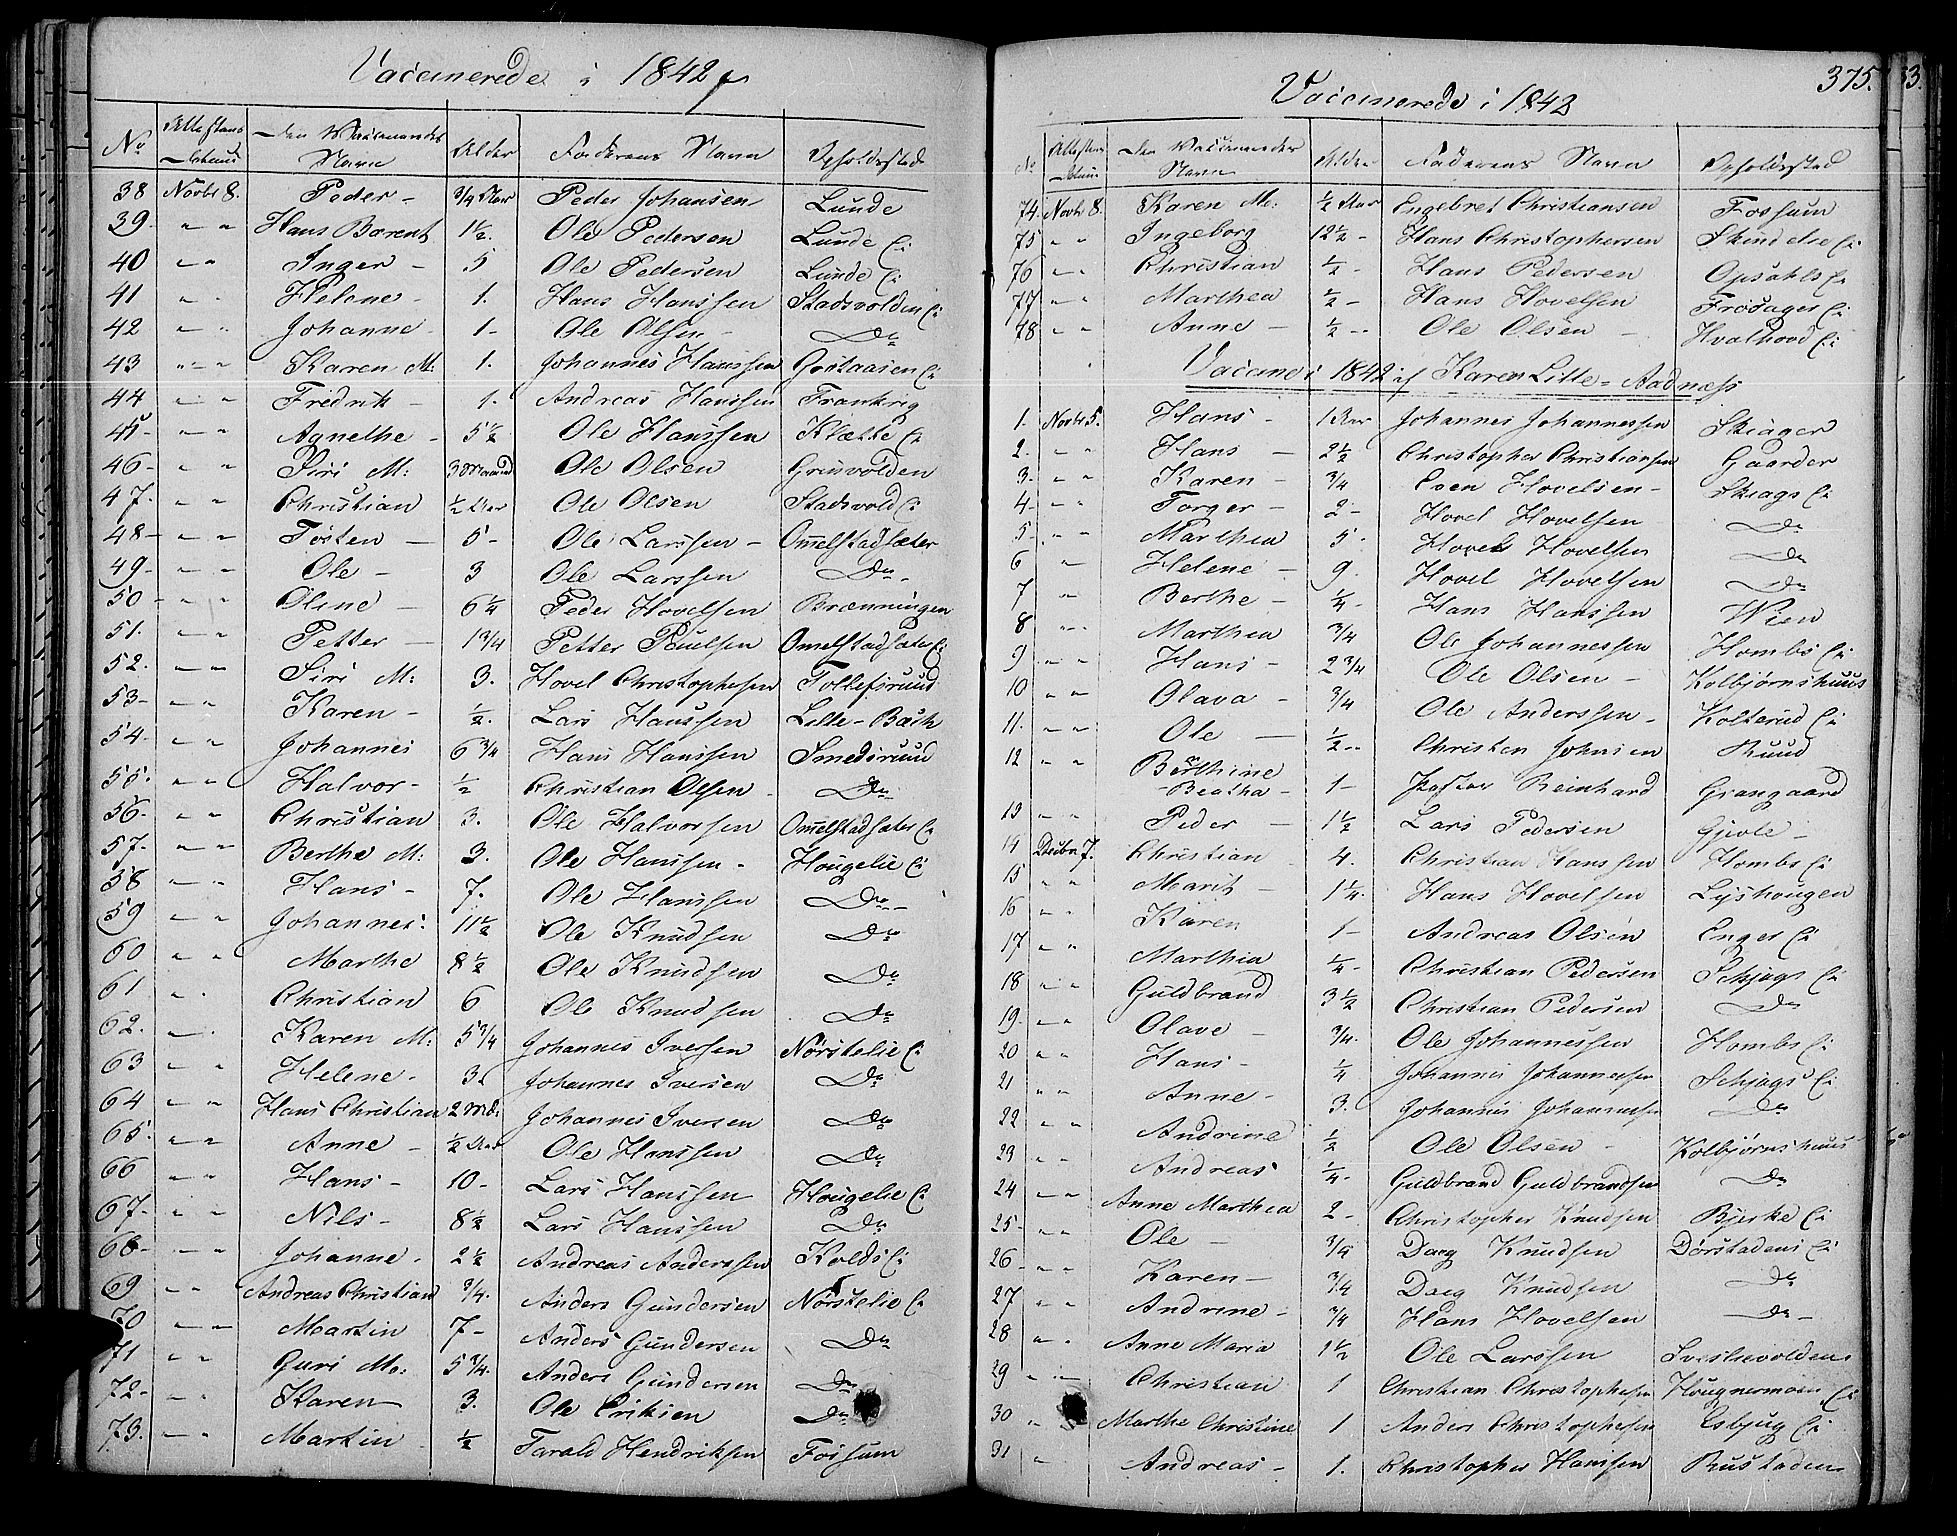 Vaccinerede i 1842
No Attestens Datum Den Vaccineredes Navn Alder Faderens Navn Opholdssted
38 Novbr 8. Peder - 3/4 Aar Peder Johansen Lunde
39. " " Hans Barent 1 1/2. Ole Pedersen Lunde Ei
40 " " Inger - 5 Ole Pedersen Lunde Ei
41 " " Helene - 1. Hans Hanssen Stadsvolden Ei
42 " " Johanne - 1- Ole Olsen - Do
43 " " Karen M: 1. Johannes Hanssen Ei
44 " " Fredrik - 1. Andreas Hanssen Frankrig
45- " " Agnethe - 5 1/2 Ole Hanssen Klætte Ei
46- " " Siri M: 3 Maaned Ole Olsen Grinvolden
47. " " Christian 1/2 Aar Ole Olsen Stadsvold Ei
48- " " Tosten - 5- Ole Larssen - Omelstadsæter
49- " " Ole - 3 Ole Larssen Do
50- " " Oline - 6 1/4 Peder Hovelsen Brænningen
51. " " Petter - 1 3/4 Petter Paulsen Omelstadsæter Ei
52. " " Siri M: 3. Hovel Christophersen Tollefsruud
53- " " Karen - 1/2. Lars Hanssen Lille-Bæch
54. " " Johannes 6 3/4 Hans Hanssen Smedsruud
55. " " Halvor - 1/2 Christian Olsen - Do
56. " " Christian 3. Ole Halvorsen Omelstadsæter Ei
57. " " Berthe M: 3. Ole Hanssen - Hougelie Ei
58 " " Hans - 7. Ole Hanssen Do
59 " " Johannes 11 1/2 Ole Knudsen Do
60 " " Marthe 8 1/2 Ole Knudsen Do
61 " " Christian 6 Ole Knudsen Do
62. " " Karen M: 5 3/4 Johannes Iversen Nørstelie Ei
63 " " Helene - 3. Johannes Iversen Do
64 " " Hans Christian 2 Md. Johannes Iversen Do
65. " " Anne - 1/2 Aar Ole Hanssen Do
66 " " Hans - 10- Lars Hanssen Hougelie Ei
67- " " Nils - 8 1/2 Lars Hanssen Do
68- " " Johanne - 2 1/2 Andreas Anderssen Kolds Ei
69 " " Andreas Christian 3/4. Anders Gundersen Nørstelie Ei
70 " " Martin 7- Anders Gundersen Do
71 " " Guri M: 5 3/4. Anders Gundersen Do
72- " " Karen 3. Ole Eriksen Do
73. " " Martin 1/2 Tarald Hendriksen Fossum
375.
Vaccinerede i 1842
No Attestens Datum Den Vaccineredes Navn Alder Faderens Navn Opholdssted
74. Novbr 8. Karen M: 1/2 Aar Engebret Christiansen Fossum
75 " " Ingeborg 12 1/2 - Hans Christophersen Ei
76 " " Christian 1/2 - Hans Pedersen Opsahls Ei
77 " " Marthea 1/2 - Hans Hovelsen Frøsager Ei
78 " " Anne - 1/2 - Ole Olsen - Hvalhovd Ei
Vaccined i 1842 af Karen Lille-Aadnæss
1. Novbr 5. Hans - 1 Aar Johannes Johannessen Skiager
2. " " Hans - 2 1/2 Christopher Christiansen Gaarder
3. " " Karen - 3/4 Even Hovelsen - Skiags Ei
4- " " Torger - 2- Hovel Hovelsen Do
5- " " Marthea 5. Hovel Hovelsen Do
6 " Helene - 9. Hovel Hovelsen Do
7 " Berthe - 1/4 - Hans Hanssen Wien
8 " " Marthea 3/4 Ole Johannessen Hombs Ei
9 " " Hans - 2 3/4 Ole Olsen - Kolbjørnshuus
10 " " Olava - 3/4 Ole Anderssen - Kolterud Ei
11. " " Ole - 1/2 - Christen Johnsen Ruud
12 " " Berthine Beatha - 1- Pastor Reinhard Grangaard
13 " " Peder - 1 1/2 Lars Pedersen Gjevle -
14 Decbr 7. Christian 4. Christian Hanssen Hombs Ei
15 " " Marit - 1 1/4. Hans Hovelsen Lyshougen
16 " " Karen 1- Andreas Olsen Enger Ei
17 " " Marthia 1/4 - Christian Pedersen Schjags Ei
18 " " Guldbrand 3 1/2 Christian Pedersen Do
19. " " Olave - 3/4. Ole Johannessen Hombs Ei
20 " " Hans - 1/4 Johannes Johannessen Schjags Ei
21 " " Anne - 3. Johannes Johannessen Do
22 " " Andrine 1/2 Ole Olsen - Kolbjørnshuus
23 " " Andreas 1/4 - Guldbrand Guldbrandsen Do
24 " " Anne Marthea 2- Christopher Knudsen Bjerke Ei
25- " " Ole - 3/4 Daeg Knudsen Dørstadens Ei
26- " " Karen - 3/4 Daeg Knudsen Do
27 " " Andrine - 3/4 Hans Hovelsen Do
28 " " Anne Maria 1 1/2 Ole Larssen
29 " " Christian 1 Christian Christophersen Hougnermoen Ei
30 " Marthe Christine 1 Anders Christophersen Esbjug Ei
31 " Andreas - 1. Christopher Hanssen Rustaden